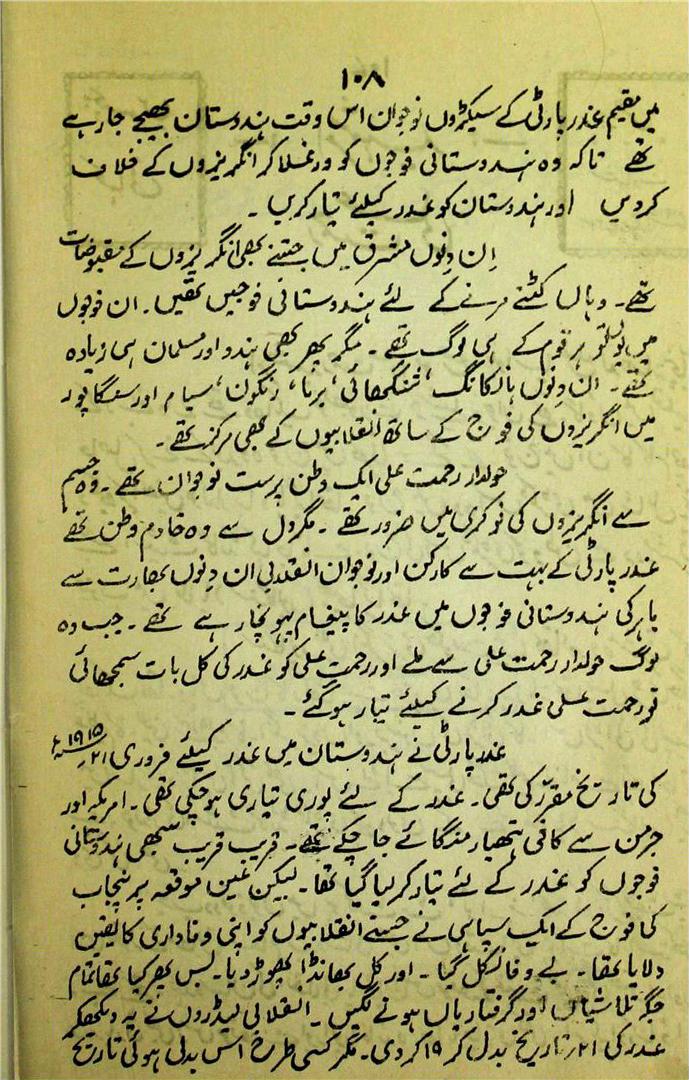 ۱۰۸
میں مقیم غدر پارٹی کے سیکڑوں نوجوان اس وقت ہندوستان بھیجے جا رہے
تھے تاکہ وہ ہندوستانی فوجوں کو ورغلا کر انگریزوں کے خلاف
کر دیں اور ہندوستان کو غدر کیلئے تیار کریں ۔
اِن دِنوں مشرق میں جتنے بھی انگریزوں کے مقبوضات
تھے ۔ وہاں کٹنے مرنے کے لئے ہندوستانی فوجیں تھیں ۔ ان فوجوں
میں یوں تو ہر قوم کے ہی لوگ تھے ۔ مگر پھر بھی ہندو اور مسلمان ہی زیادہ
تھے ۔ ان دِنوں ہانگ کانگ ، شنگھائی ، برما ، رنگون ، سیام اور سنگاپور
میں انگریزوں کی فوج کے ساتھ انقلابیوں کے بھی مرکز تھے ۔
حولدار رحمت علی ایک وطن پرست نوجوان تھے ۔ وہ جسم
سے انگریزوں کی نوکری میں ضرور تھے ۔ مگر دل سے وہ خادم وطن تھے
غدر پارٹی کے بہت سے کارکن اور نوجوان انقلابی ان دِنوں بھارت سے
باہر کی ہندوستانی فوجوں میں غدر کا پیغام پہونچا رہے تھے ۔ جب وہ
لوگ حولدار رحمت علی سے ملے اور رحمت علی کو غدر کی کل بات سمجھائی
تو رحمت علی غدر کرنے کیلئے تیار ہو گئے ۔
غدر پارٹی نے ہندوستان میں غدر کیلئے فروری ۲۱ ؍ ۱۹۱۵ء
کی تاریخ مقرّر کی تھی ۔ غدر کے لئے پوری تیاری ہو چکی تھی ۔ امریکہ اور
جرمن سے کافی ہتھیار منگائے جا چکے تھے ۔ قریب قریب سبھی ہندوستانی
فوجوں کو غدر کے لئے تیار کر لیا گیا تھا ۔ لیکن عین موقعہ پر پنجاب
کی فوج کے ایک سپاہی نے جسنے انقلابیوں کو اپنی وفاداری کا یقین
دلایا تھا ۔ بے وفا نکل گیا ۔ اور کل بھانڈا پھوڑ دیا ۔ بس پھر کیا تھا تمام
جگہ تلاشیاں اور گرفتاریاں ہونے لگیں ۔ انقلابی لیڈروں نے یہ دیکھکر
غدر کی ۲۱ ؍ تاریخ بدل کر ۱۹ کر دی ۔ مگر کسی طرح اس بدلی ہوئی تاریخ